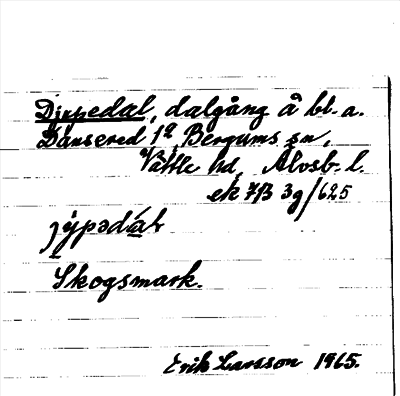 Djupedal, dalgång å bl. a.
Dansered 1º, Bergums sn,
Vättle hd, Älvsb. l.
ek 7B 3g/625
jýpədáɫ
Skogsmark.
Erik Larsson 1965.